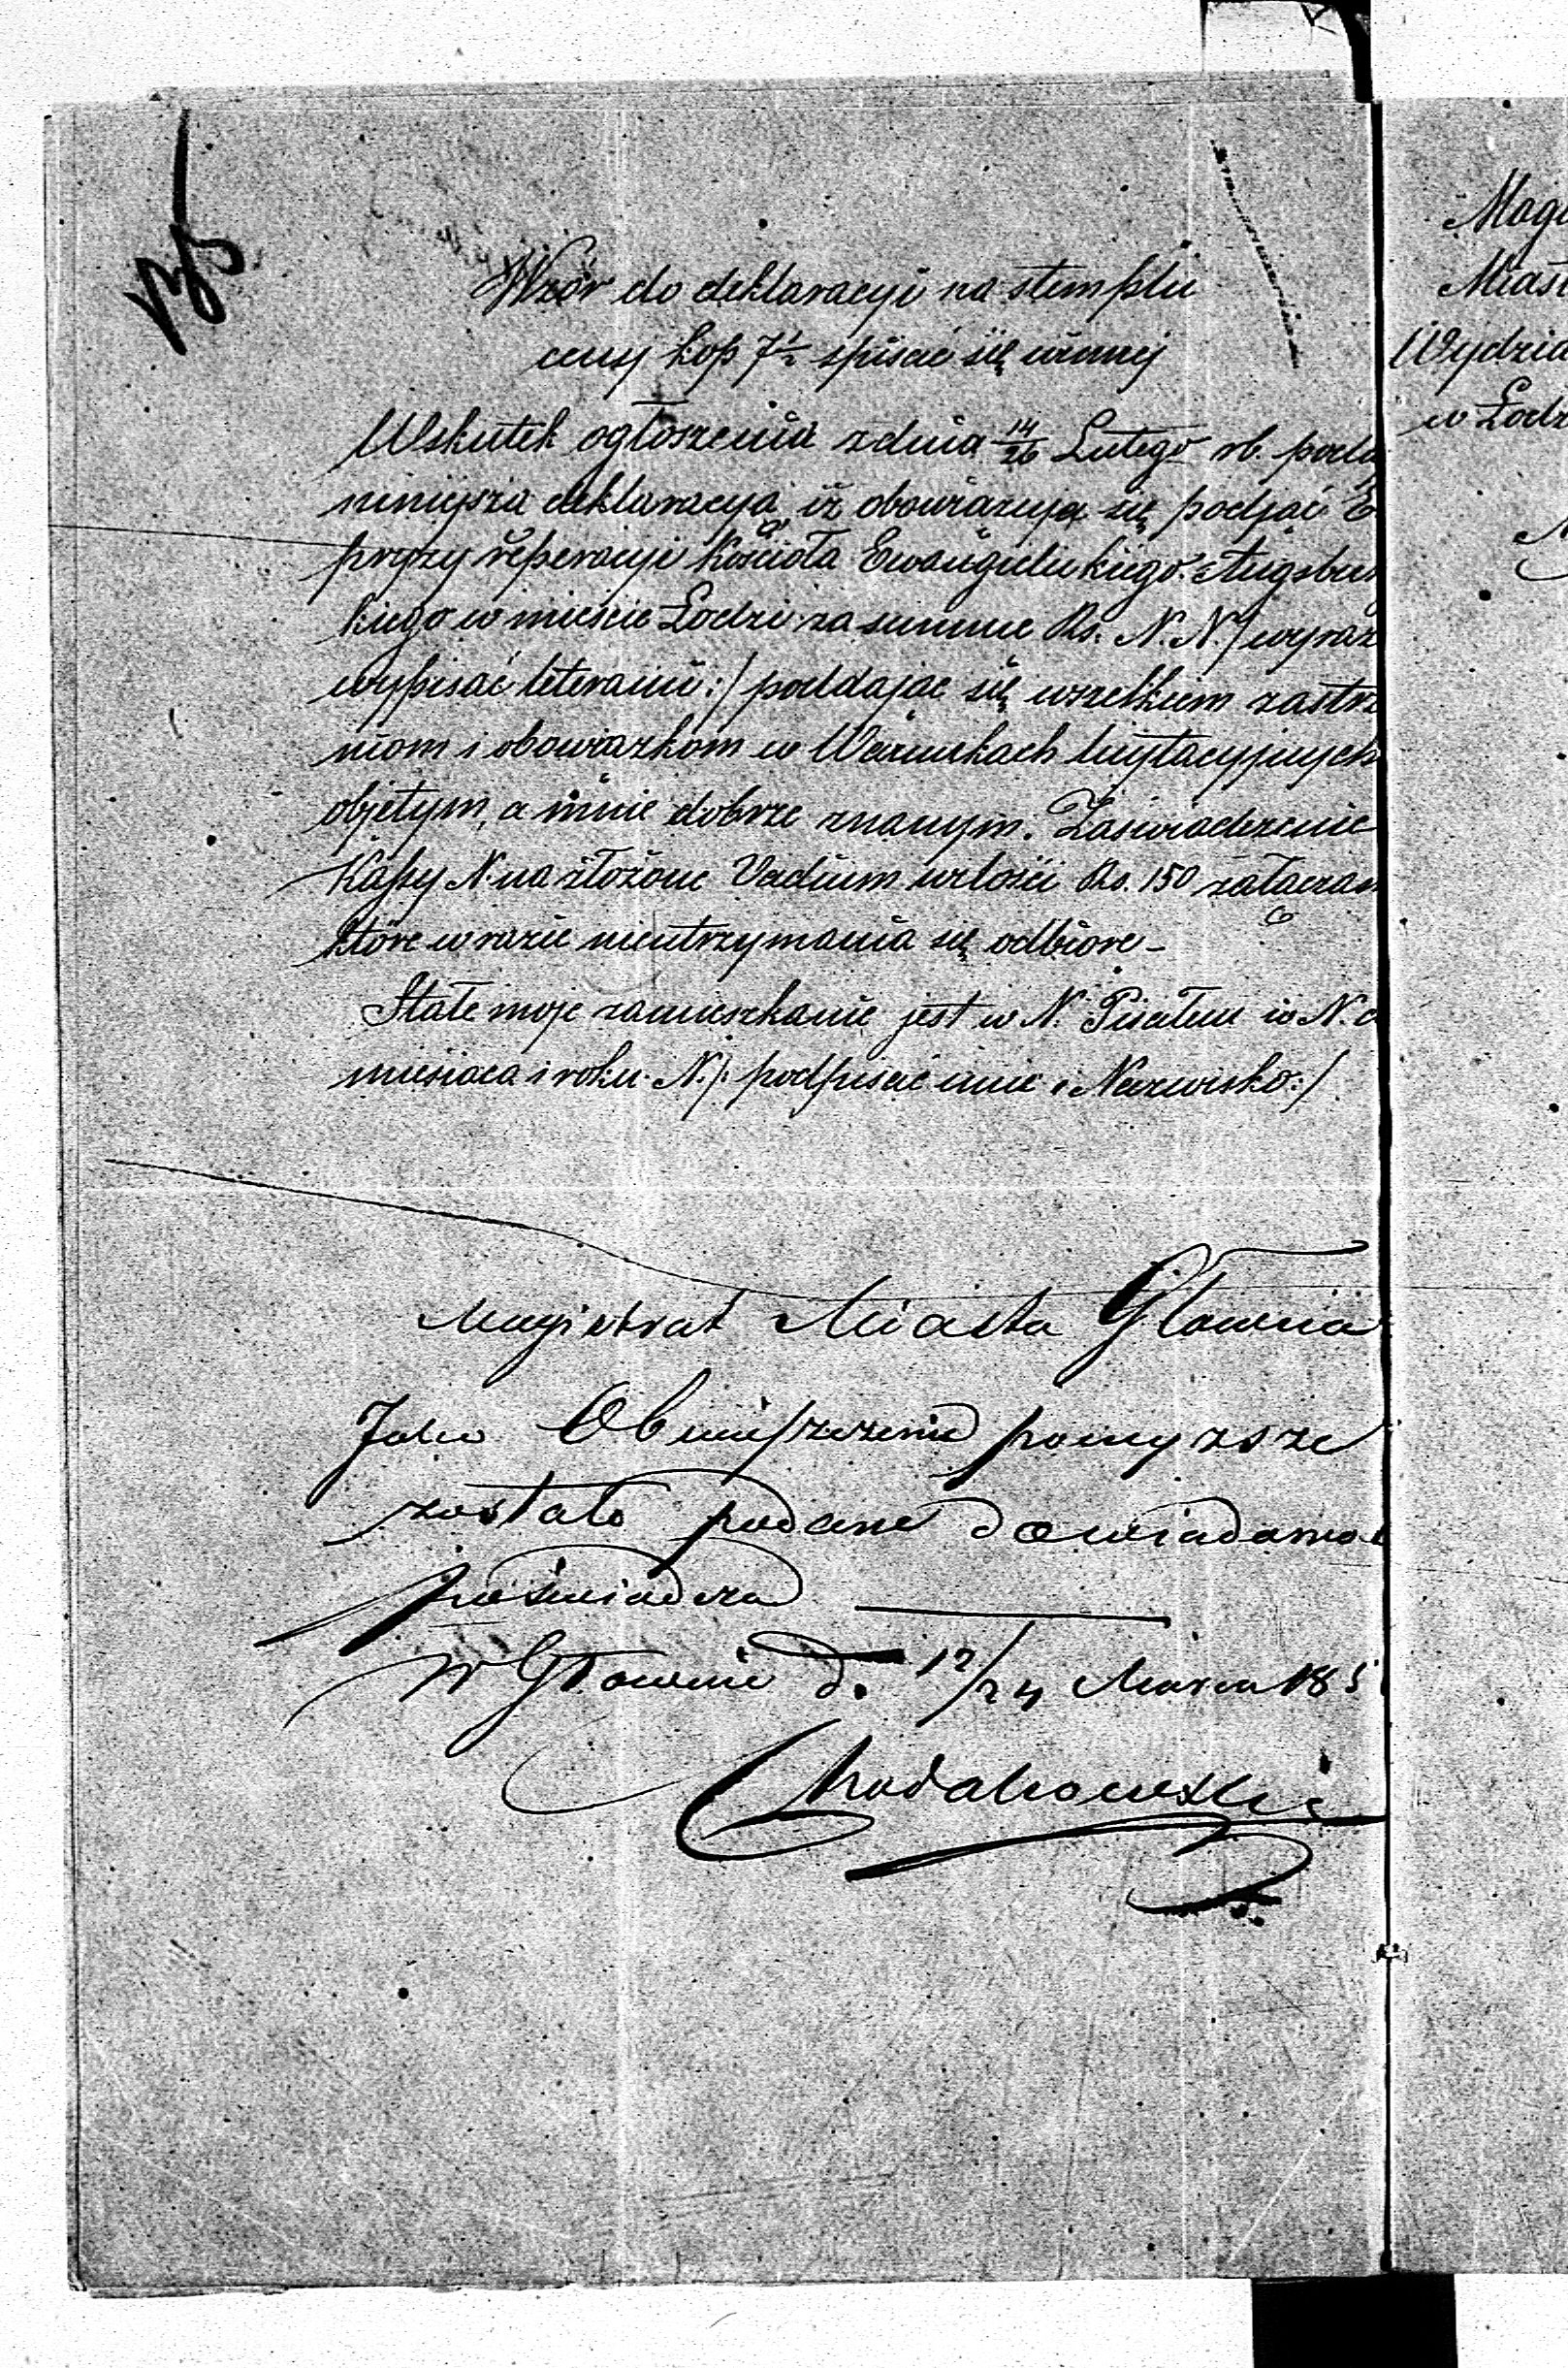 Wzór do deklaracyi na stemplu
ceny kop 7½ spisać się winnej
Wskutek ogłoszenia z dnia 14/26 Lutego rb. poda
niniejszą deklaracyą iż obowiązuję się podjąć
przy reperacyi Kościoła Ewangielickiego Augsburs
kiego w mieście Łodzi za summę Rs. N. N. /wyraz
wypisać literami:/ poddając się wszelkiem zastrze
niom i obowiązkom w Warunkach licytacyjnych
objętym, a mnie dobrze znanym. Zaświadczenie
Kassy N na złożone Vadium w ilości Rs. 150 załączam
które w razie nieutrzymania się odbiorę -
Stałe moje zamieszkanie jest w N. Pisałem w N. d
miesiąca i roku N. /: podpisać imie i Nazwisko :/
Magistrat Miasta Głowna
Jako Obwieszczenie powyższe
zostało podane do wiadomoś
poświadcza
W Głownie d. 12/24 Marca 185
Chodakowski
Mag
Miast
Wydzia
w Łodz